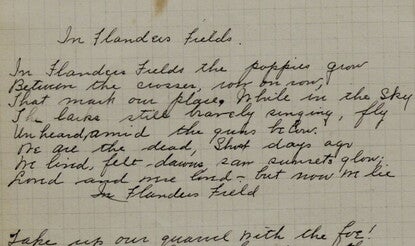 In Flanders Fields.
In Flanders Fields the poppies grow
Between the crosses, row on row,
That mark our place, While in the Sky
The larks still bravely singing, fly
Unheard, amid the guns below.
We are the dead, Short days ago
We lived, felt dawns, saw sunsets glow;
Loved and were loved - but now we lie
In Flanders Field
Take up our quarrel with the foe!